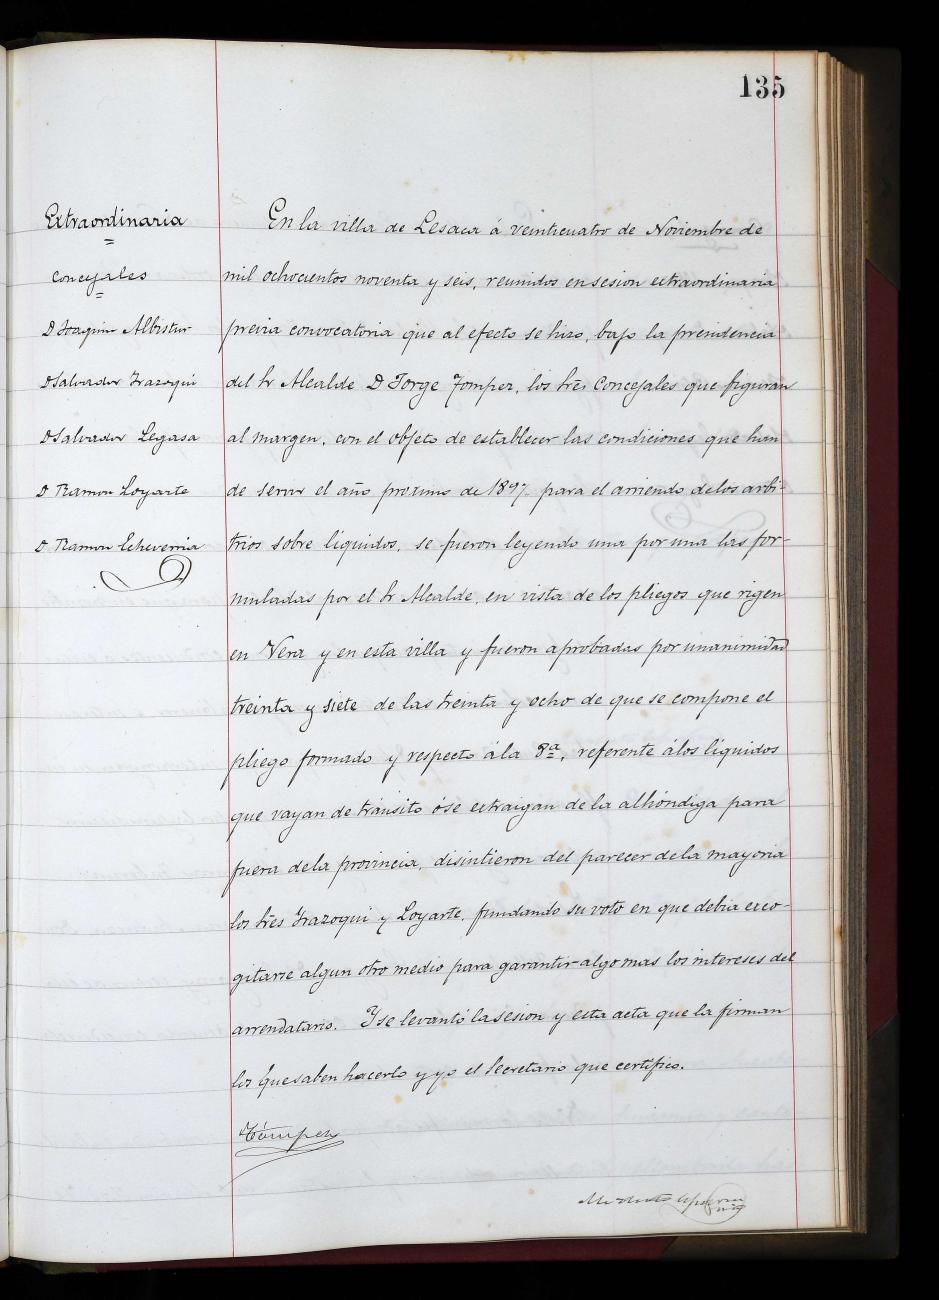 135
Extraordinaria
Concejales
D Joaquin Albistur
D Salvador Irazoqui
D Salvador Legasa
D Ramon Loyarte
D Ramon Echeverria
En la villa de Lesaca á veinticuatro de Noviembre de
mil ochocientos noventa y seis, reunidos en sesion extraordinaria
previa convocatoria que al efecto se hizo, bajo la presidencia
del Sr Alcalde D Jorge Tompes, los Sres Concejales que figuran
al margen, con el objeto de establecer las condiciones que han
de servir el año proximo de 1897 para el arriendo de los arbi-
trios sobre liquidos, se fueron leyendo una por una las for-
muladas por el Sr Alcalde, en vista de los pliegos que rigen
en Vera y en esta villa y fueron aprobadas por unanimidad
treinta y siete de las treinta y ocho de que se compone el
pliego formado y respecto á la 8ª, referente á los líquidos
que vayan de tránsito ó se extraigan de la alhóndiga para
fuera de la provincia, disintieron del parecer de la mayoria
los Sres Irazoqui y Loyarte, fundando su voto en que debia exco-
gitarse algun otro medio para garantir algo mas los intereses del
arrendatario. Y se levantó la sesion y esta acta que la firman
los que saben hacerlo y yo el Secretario que certifico.
Tompes